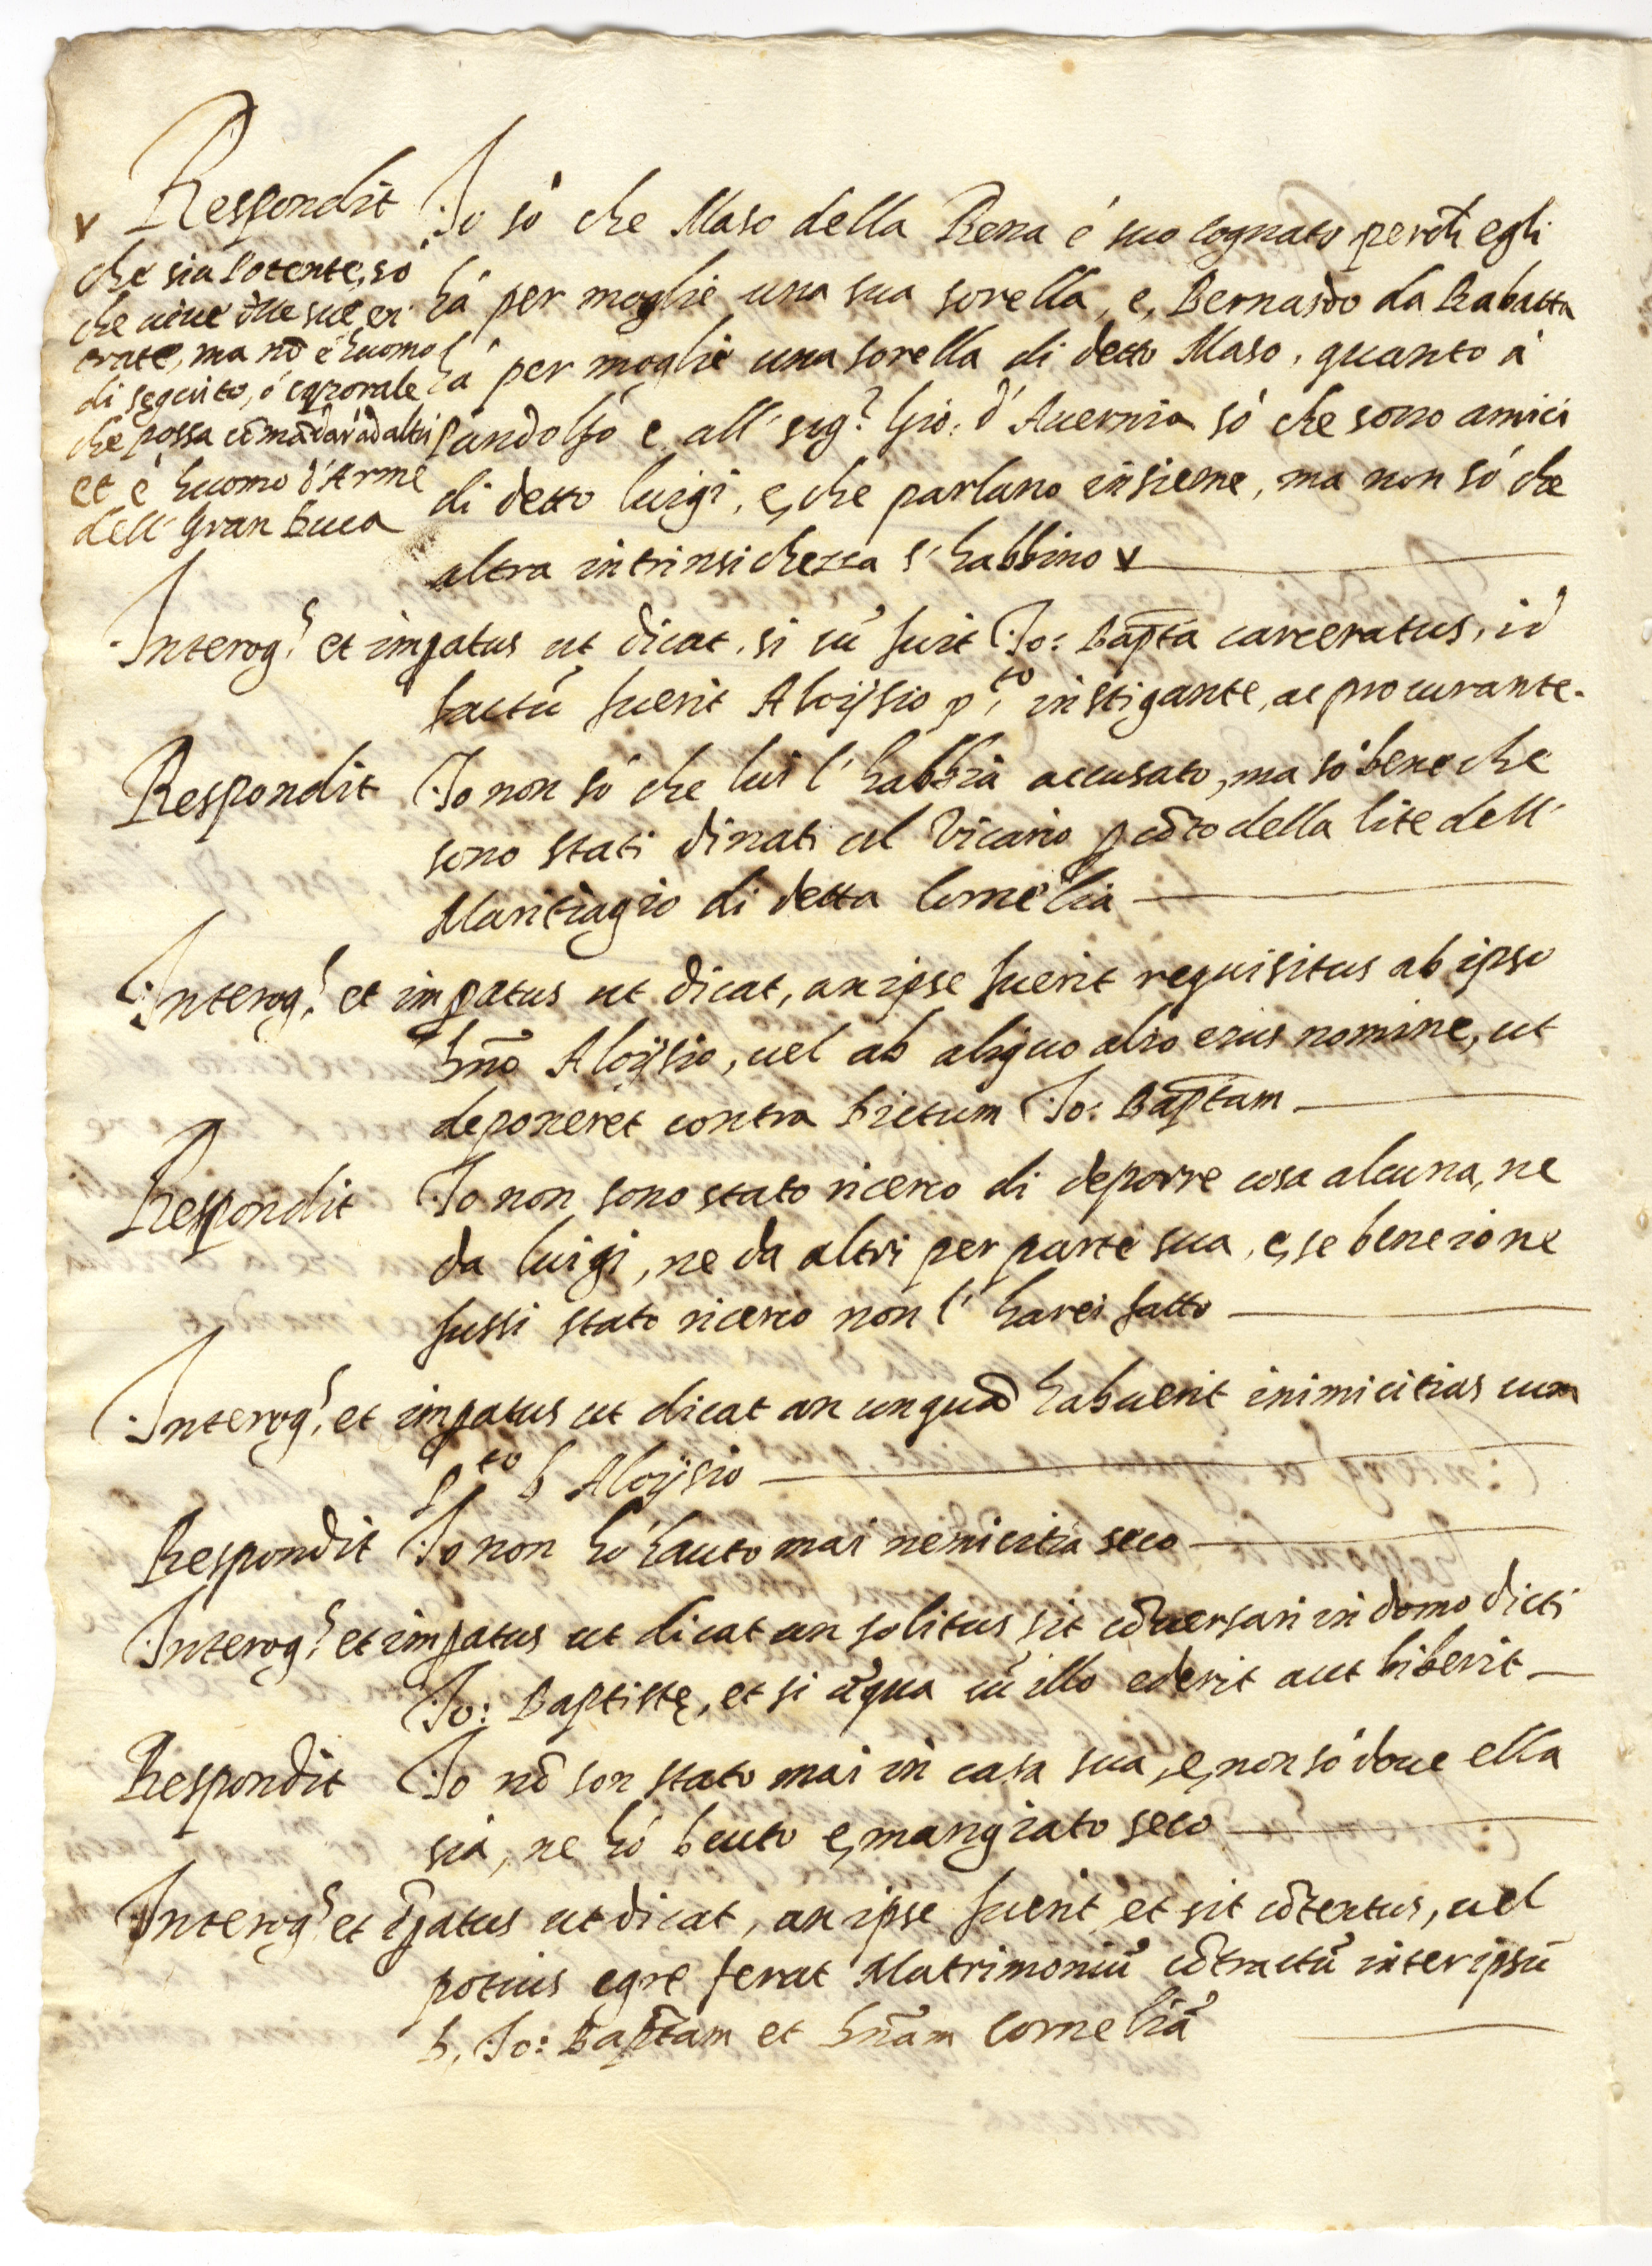 Respondit Io sò che Maso della Rena é suo cognato perch egli
há per moglie una sua sorella, e, Bernardo da Rabatta
há per moglie una sorella di detto Maso, quanto á
Pandolfo e all' sig.r Gio: d' Avernia só che sono amici
di detto luigi, e, che parlano insieme, ma non só che
altra intrinsichezza s' habbino v
v
che sia Potente, só
che vive dell sue en
trate, ma nō é huomo
di seguito, ó caporale
che possa cōmādar ad altri
et é huomo d'Arme
dell' Gran Duca
Interog.s et impatus ut dicat, si cū fuit Io: Bapta carceratus, id
factū fuerit Aloijsio p.to instigante, ac procurante.
Respondit Io non só che lui l' habbia accusato, ma só bene che
sono stati dināti al Vicario p cōto della lite dell'
Maritaggio di detta Cornelia
Interog.s et impatus ut dicat, an ipse fuerit requisitus ab ipso
Dnō Aloijsio, vel ab aliquo alio eius nomine, ut
deponeret contra dictum Io: Baptam
Respondit Io non sono stato ricerco di deporre cosa alcuna, ne
da luigi, ne da altri per parte sua, e, se bene io ne
fussi stato ricerco non l' harei fatto
Interog.s et impatus ut dicat an unquā habuerit inimicitias cum
p.to D Aloijsio
Respondit Io non hó hauto mai nemicitia seco
Interog.s et impatus ut dicat an solitus sit cōversari in domo dicti
Io: Baptistę, et si ūqua cū illo ederit aut biberit
Respondit Io nō son stato mai in casa sua, e, non só dove ella
sia, ne hó beuto e, mangiato seco
Interog.s et īpatus ut dicat, an ipse fuerit et sit cōtentus, vel
potius egre ferat Matrimoniū cōtractū inter ipsū
D. Io: Baptam et Dnām Corneliā